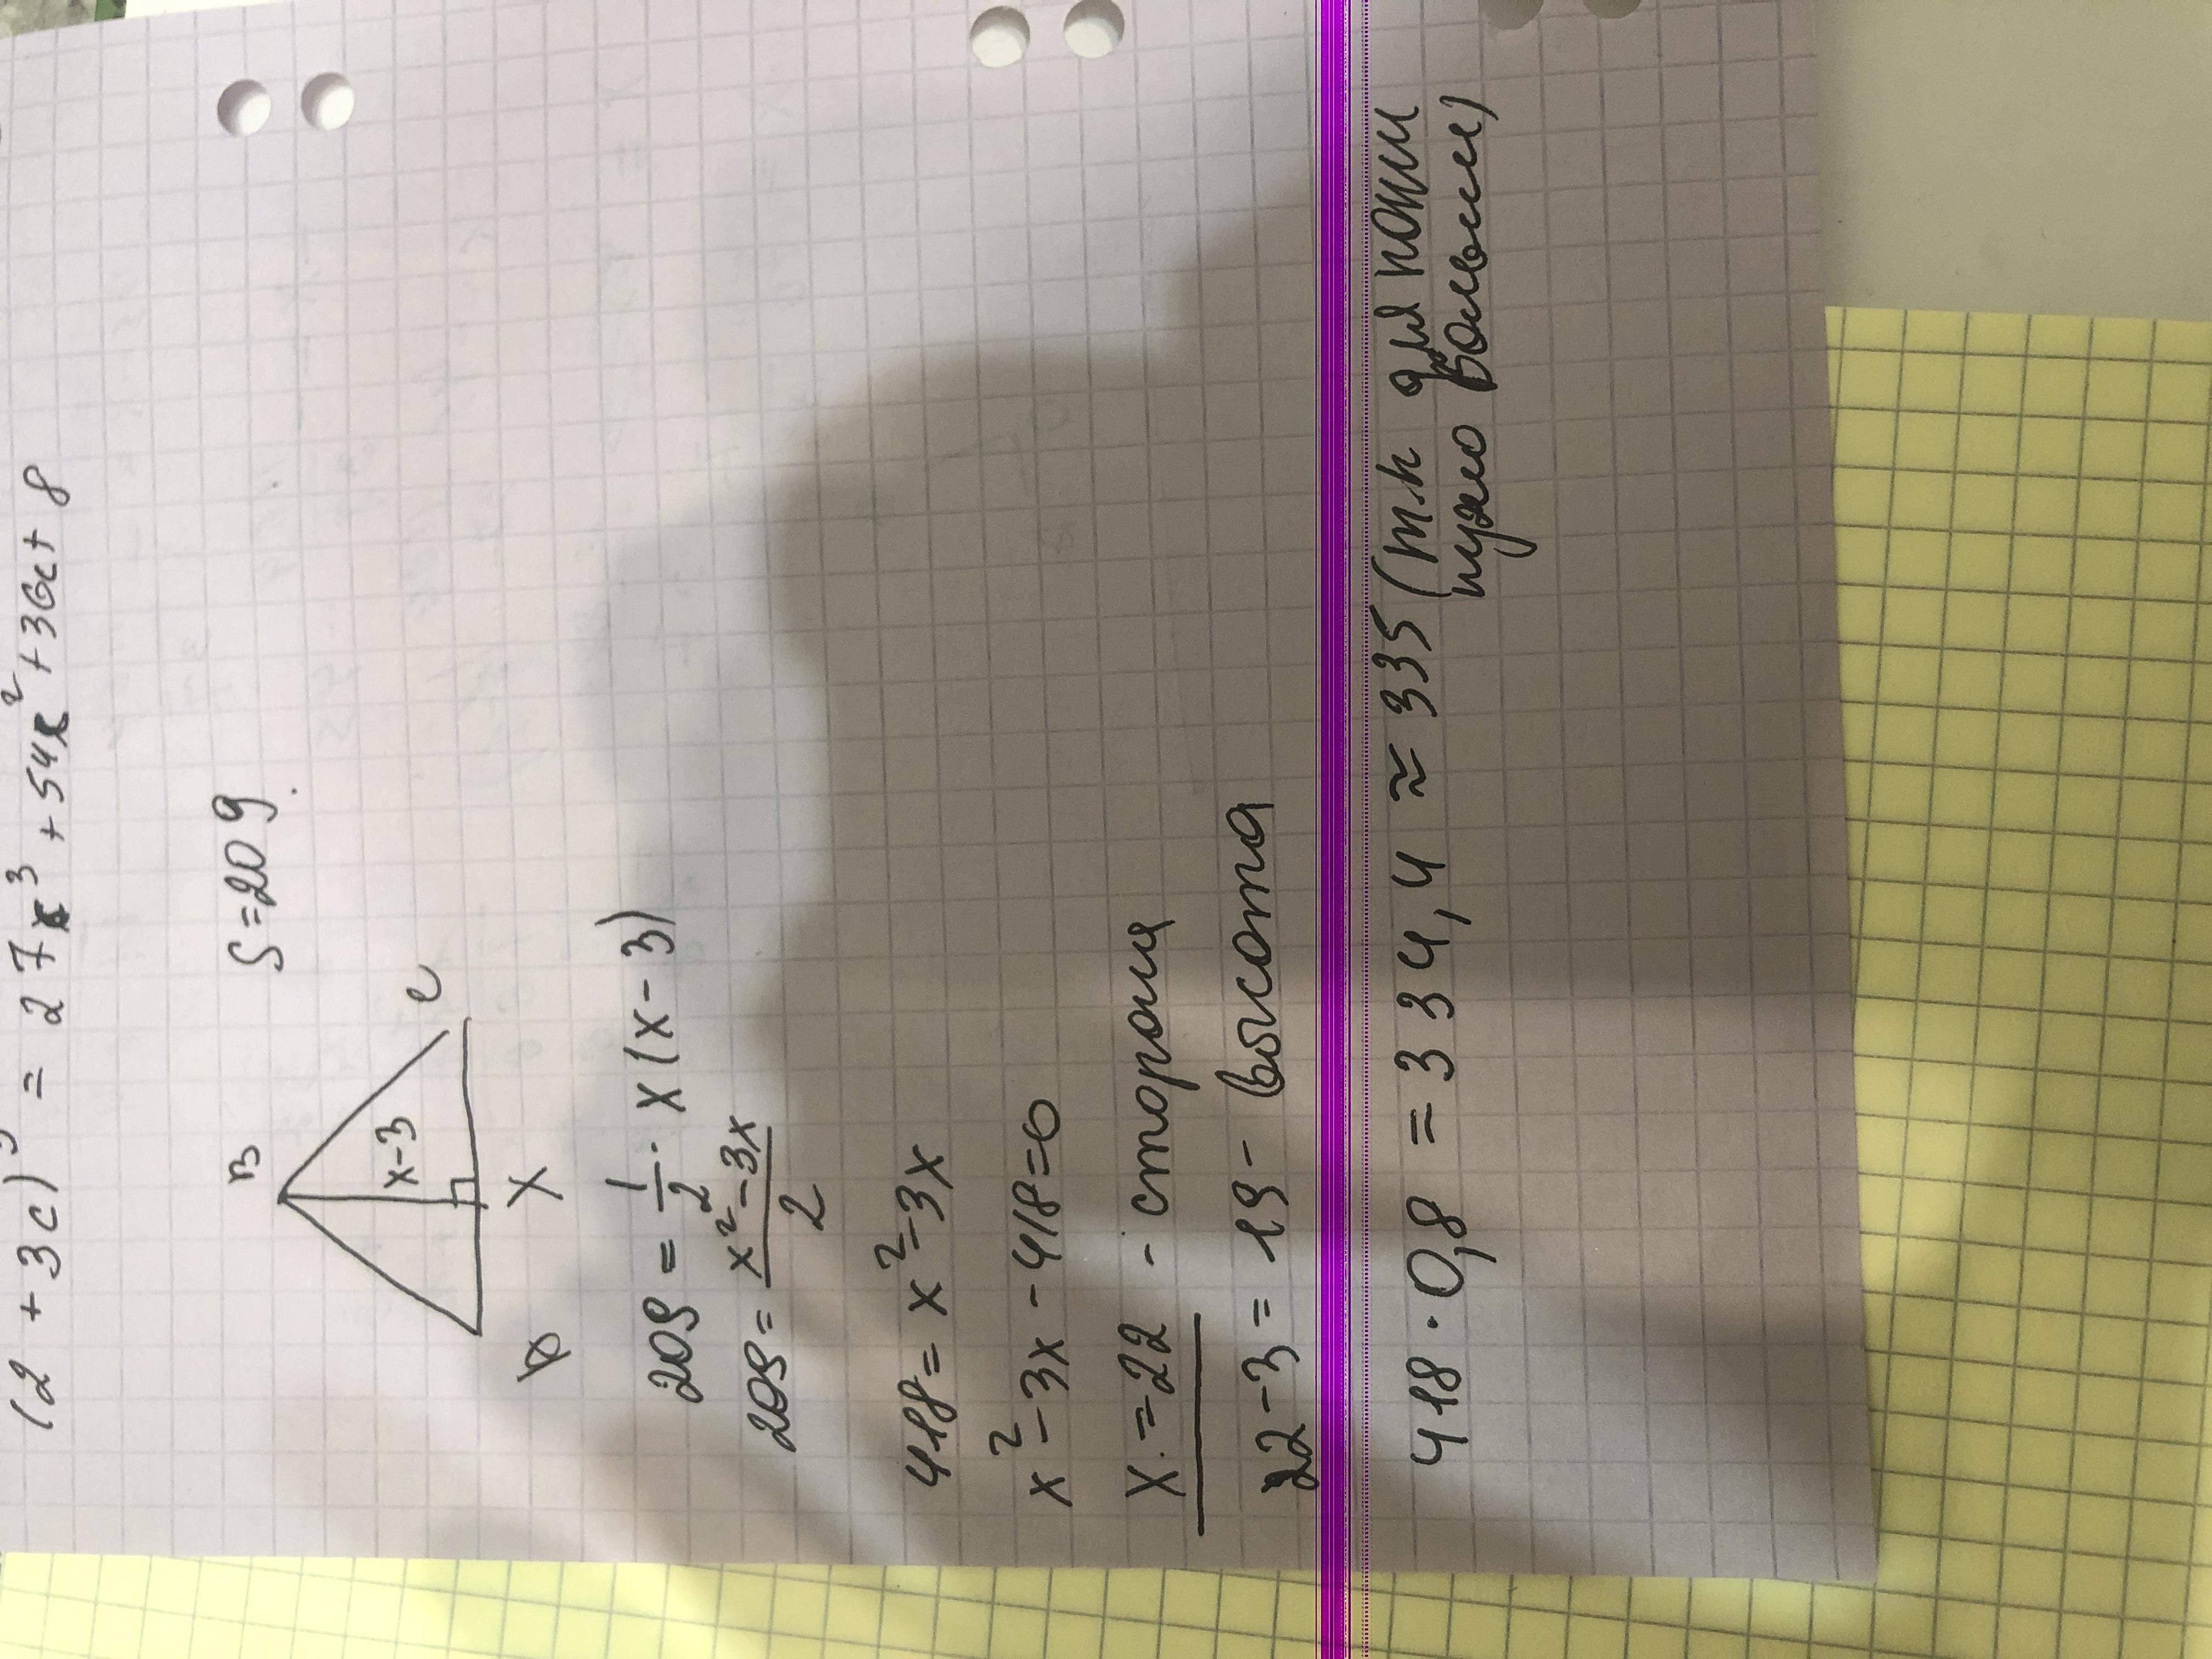 (2 + 3c)³ = 27c³ + 54c² + 36c + 8
B
S = 209
x-3
C
x
209 = 1/2 · x(x-3)
209 = x²-3x/2
418 = x²-3x
x²-3x-418=0
x = 22 - сторона
22-3 = 19 - высота
418 · 0,8 = 334,4 ≈ 335 (т.к для
нужно больше)